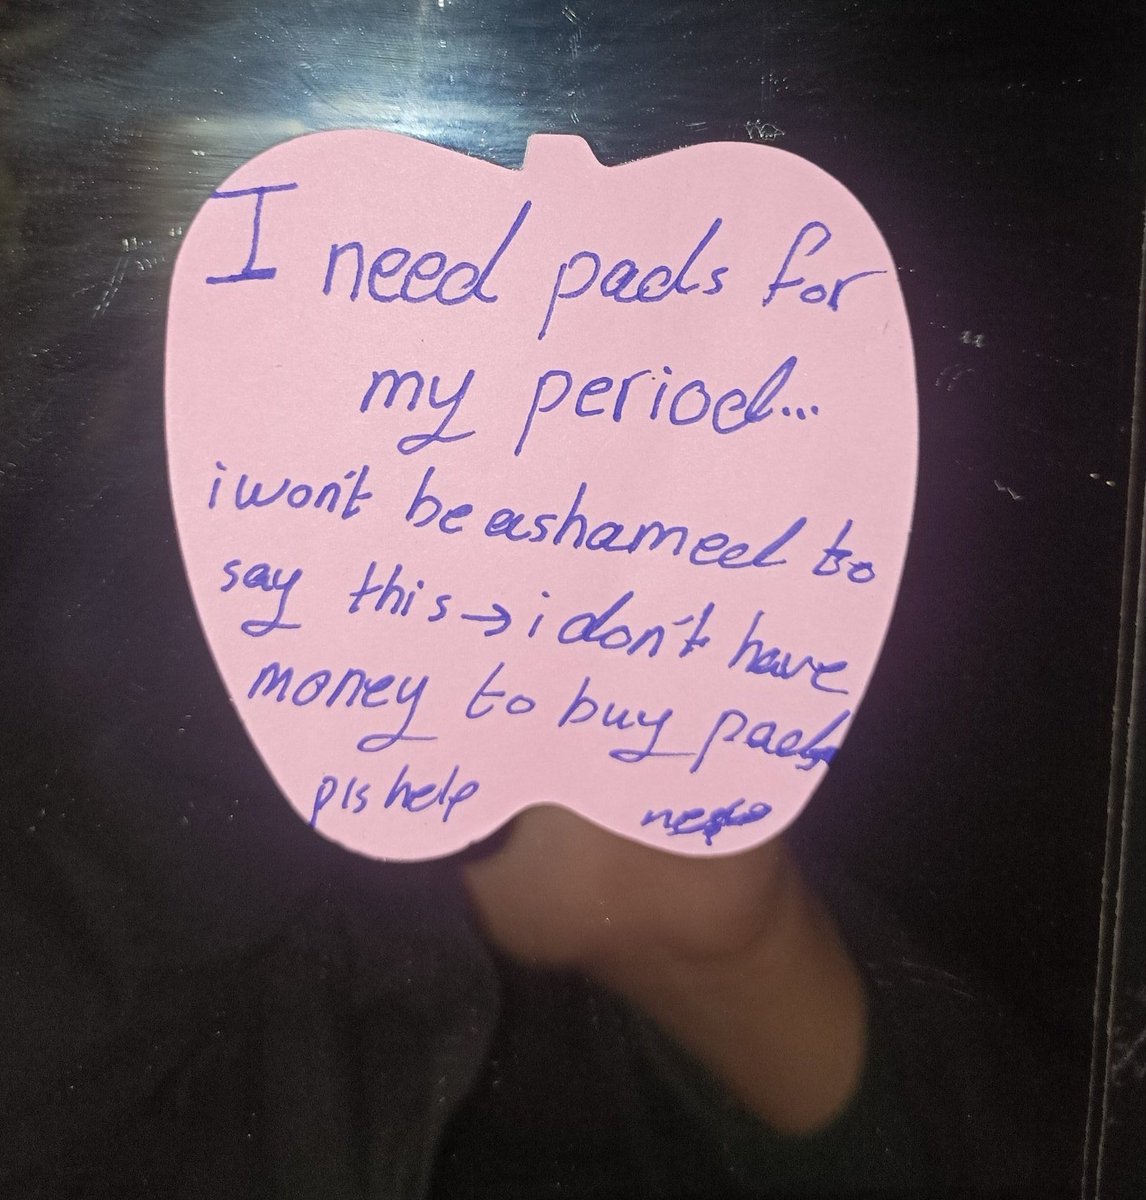 I need pads for
my period...
i won't be ashamed to
say this → i don't have
money to buy pads
pls help